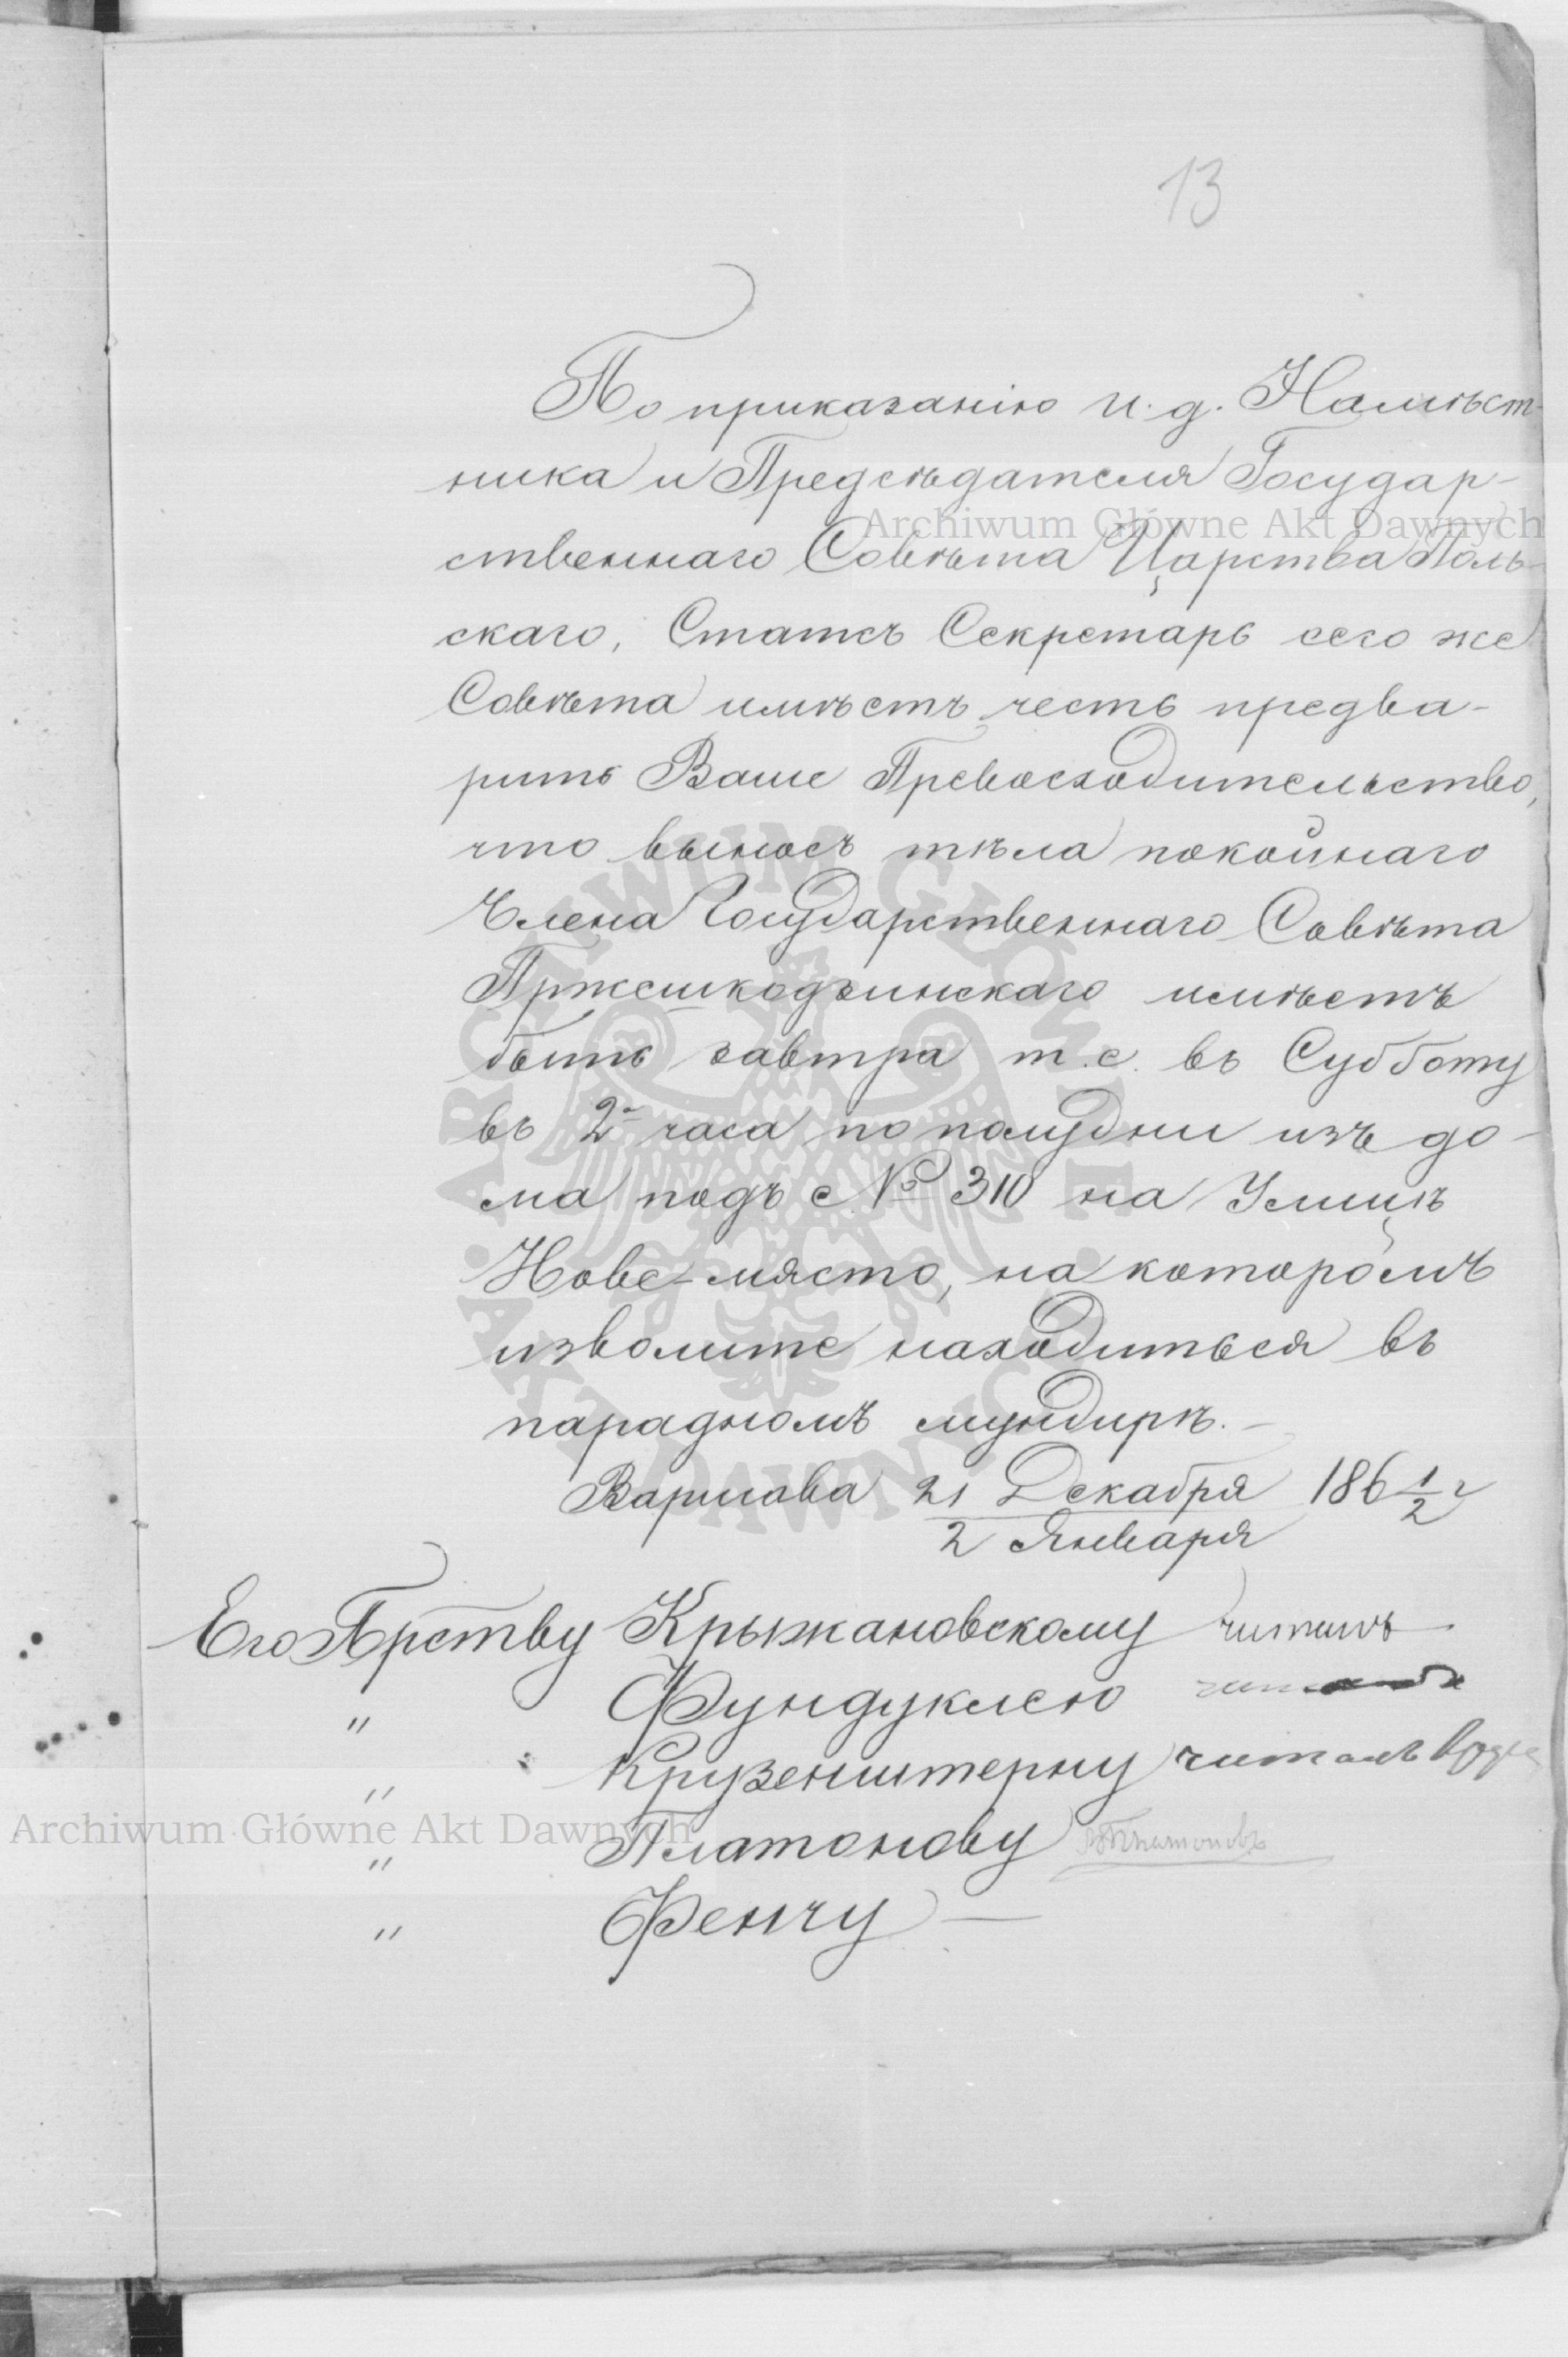 13
По приказанію и. д. Намѣст-
ника и Предсѣдателя Государ-
ственнаго Совѣта Царства Поль-
скаго, Статсъ Секретарь сего же
Совѣта имѣетъ честь предва-
рить Ваше Превосходительство,
что выносъ тѣла покойнаго
Члена Государственнаго Совѣта
Пржешкодзинскаго имѣетъ
быть завтра т. е. въ Субботу
въ 2 часа по полудни изъ до-
ма подъ № 310 на Улицѣ
Нове-място, на которомъ
изволите находиться въ
парадномъ мундирѣ.-
Варшава 21 Декабря 186 1/2 г
2 Января
Его Прству Крыжановскому читалъ
" Фундуклею
" Крузенштерну читалъ
" Платонову Платоновъ
" Фенчу —
Archiwum Główne Akt Dawnych
ARCHIWUM GŁÓWNE AKT DAWNYCH
Archiwum Główne Akt Dawnych